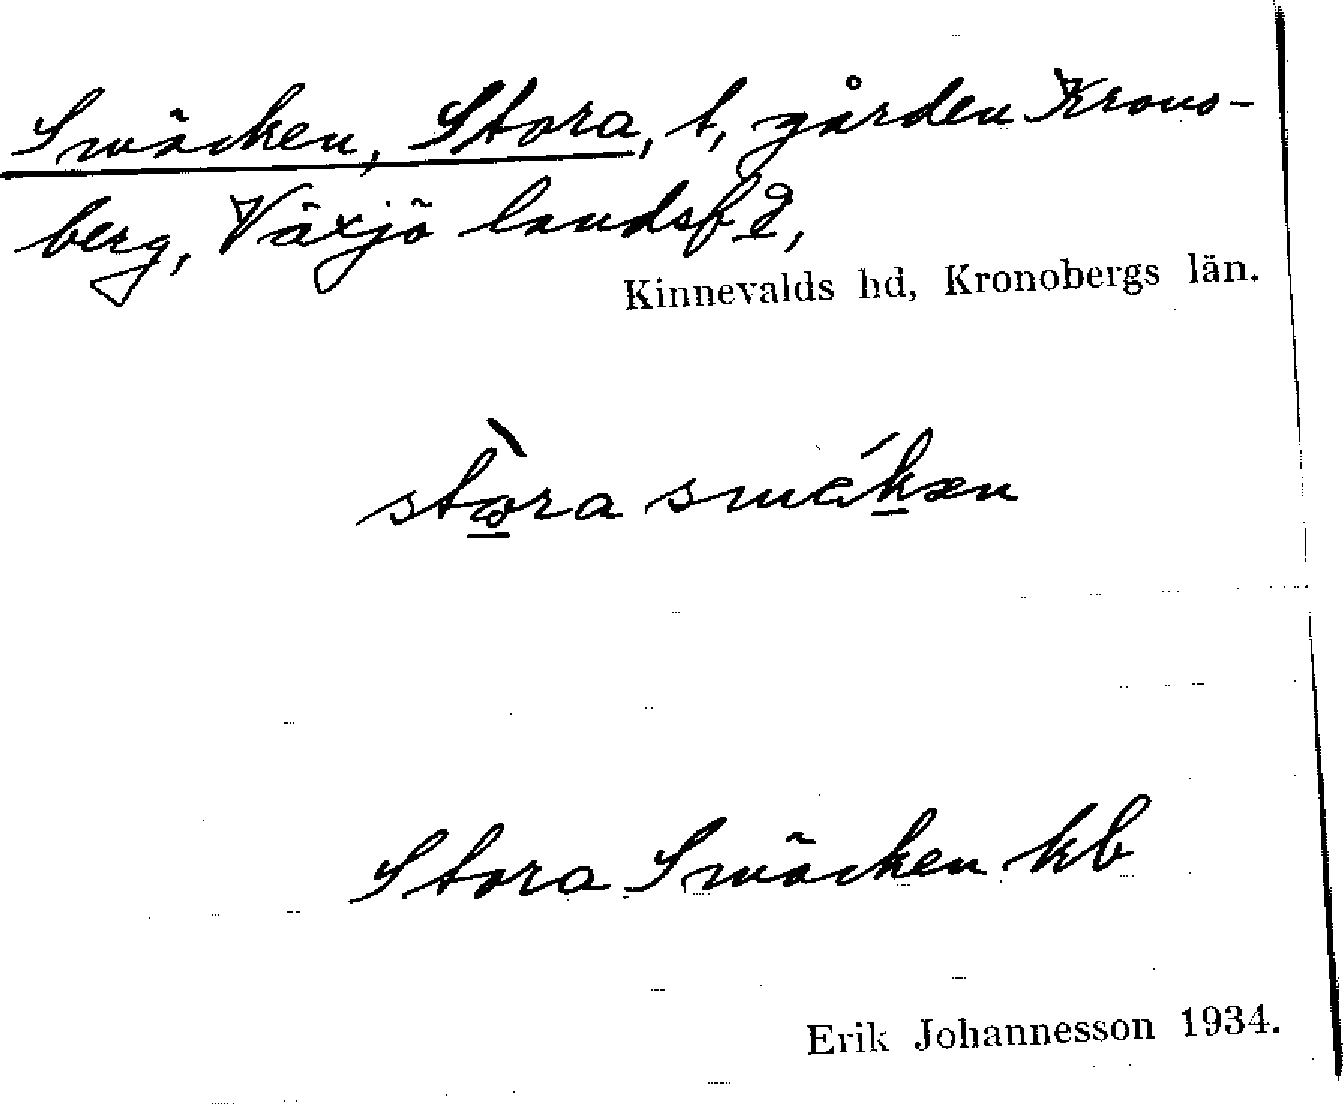 Smäcken, Stora, t, gården Krono-
berg, Växjö landsf 2,
Kinnevalds hd, Kronobergs län.
stora smäkæn
Stora Smäcken kb
Erik Johannesson 1934.